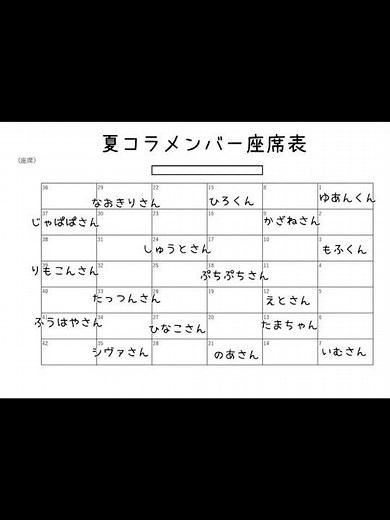 夏コラメンバー座席表
(座席)
36 29 22 15 8 1
なおきりさん ひろくん ゆあんくん
37 30 23 16 9 2
じゃぱぱさん かざねさん
38 31 24 17 10 3
しゅうとさん もふくん
39 32 25 18 11 4
りもこんさん ぷちぷちさん
40 33 26 19 12 5
たっつんさん えとさん
41 34 27 20 13 6
ふうはやさん ひなこさん たまちゃん
42 35 28 21 14 7
シヴァさん のあさん いむさん